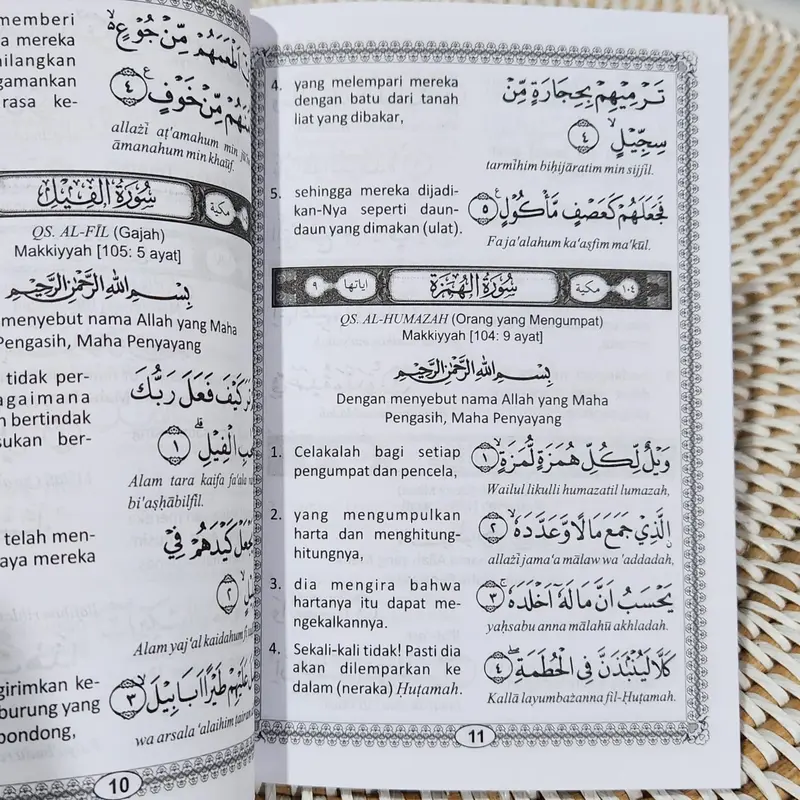 memberi
mereka
hilangkan
rasa ke-
أَطْعَمَهُمْ مِّنْ جُوْعٍ
مِّنْ خَوْفٍ ٤
allażī aṭ'amahum min
āmanahum min khaūf.
سُوْرَةُ الْفِيْلِ
مكية
QS. AL-FĪL (Gajah)
Makkiyyah [105: 5 ayat]
بِسْمِ اللّٰهِ الرَّحْمٰنِ الرَّحِيْمِ
menyebut nama Allah yang Maha
Pengasih, Maha Penyayang
tidak per-
bagaimana
bertindak
ber-
كَيْفَ فَعَلَ رَبُّكَ
الْفِيْلِ ١
Alam tara kaifa fa'ala
bi'aṣḥābilfīl.
telah men-
mereka
كَيْدَهُمْ فِيْ
٢
Alam yaj'al kaidahum
ke-
burung yang
bondong,
عَلَيْهِمْ طَيْرًا اَبَابِيْلَ ٣
wa arsala 'alaihim
10
4. yang melempari mereka
dengan batu dari tanah
liat yang dibakar,
تَرْمِيْهِمْ بِحِجَارَةٍ مِّنْ
سِجِّيْلٍ ٤
tarmīhim biḥijāratim min sijjīl.
5. sehingga mereka dijadi-
kan-Nya seperti daun-
daun yang dimakan (ulat).
فَجَعَلَهُمْ كَعَصْفٍ مَّأْكُوْلٍ ٥
Fa ja'alahum ka'aṣfim ma'kūl.
١٠٤ مكية سُوْرَةُ الْهُمَزَةِ اياتها ٩
QS. AL-HUMAZAH (Orang yang Mengumpat)
Makkiyyah [104: 9 ayat]
بِسْمِ اللّٰهِ الرَّحْمٰنِ الرَّحِيْمِ
Dengan menyebut nama Allah yang Maha
Pengasih, Maha Penyayang
1. Celakalah bagi setiap
pengumpat dan pencela,
وَيْلٌ لِّكُلِّ هُمَزَةٍ لُّمَزَةٍ ١
Wailul likulli humazatil lumazah,
2. yang mengumpulkan
harta dan menghitung-
hitungnya,
الَّذِيْ جَمَعَ مَالًا وَّعَدَّدَهٗ ٢
allażī jama'a mālaw wa'addadah,
3. dia mengira bahwa
hartanya itu dapat me-
ngekalkannya.
يَحْسَبُ اَنَّ مَالَهٗٓ اَخْلَدَهٗ ٣
yaḥsabu anna mālahū akhladah.
4. Sekali-kali tidak! Pasti dia
akan dilemparkan ke
dalam (neraka) Ḥuṭamah.
كَلَّا لَيُنْۢبَذَنَّ فِى الْحُطَمَةِ ٤
Kallā layumbażanna fil-Ḥuṭamah.
11